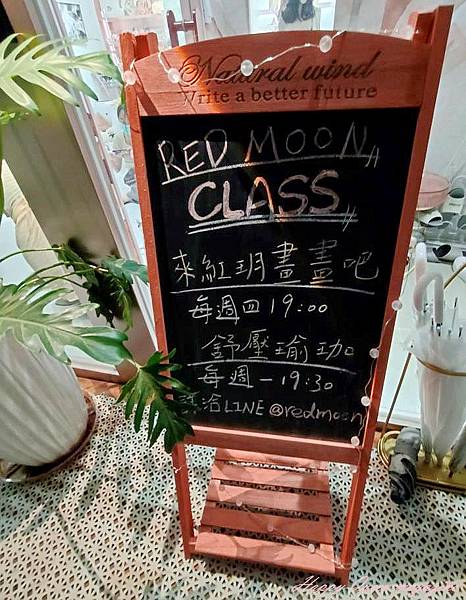 Natural wind
Write a better future
RED MOON
CLASS
來紅玥畫畫吧
每週四19:00
舒壓瑜珈
每週一19:30
洽LINE@redmoon